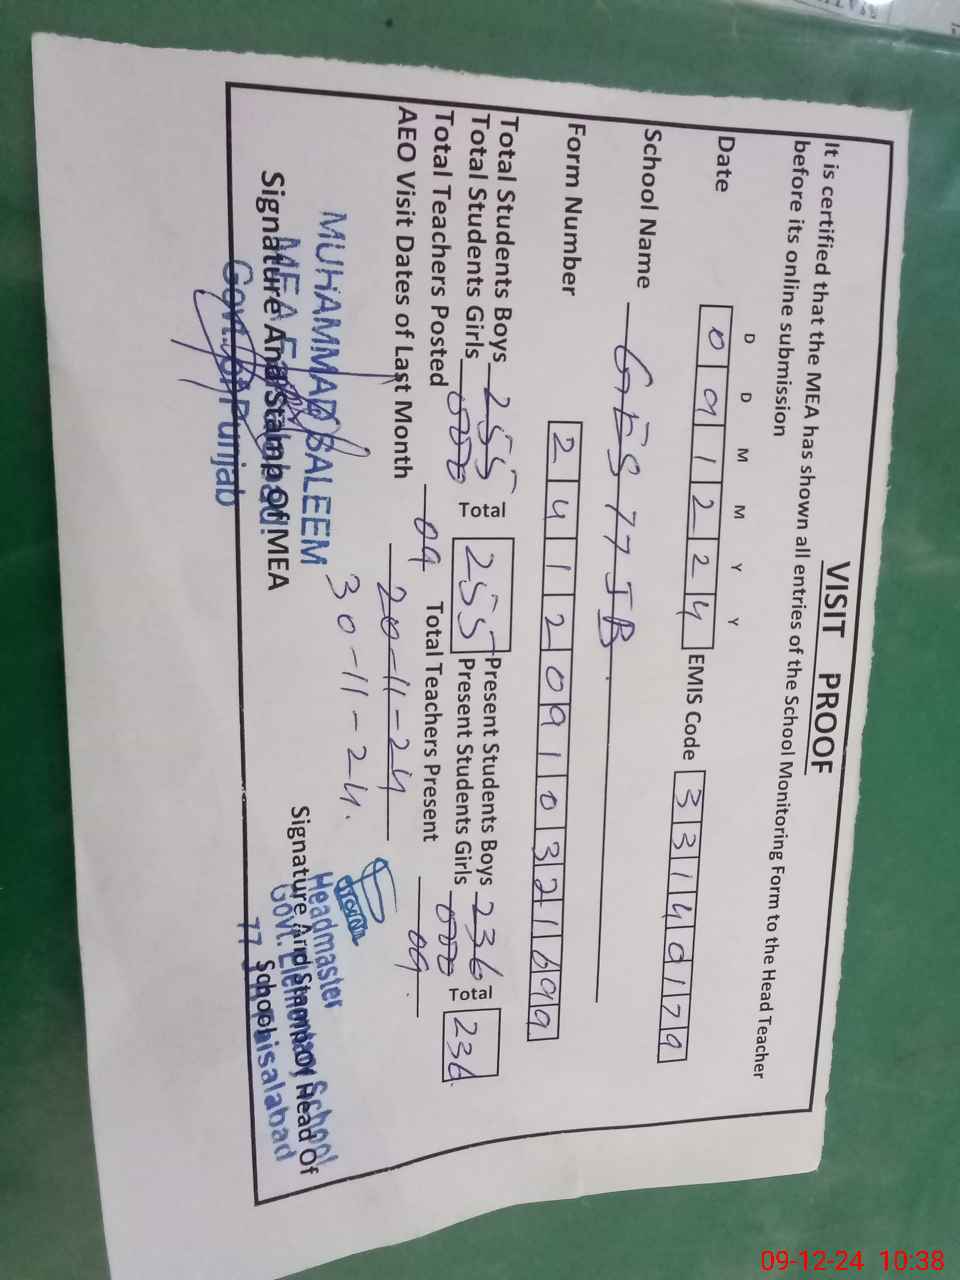 VISIT PROOF
It is certified that the MEA has shown all entries of the School Monitoring Form to the Head Teacher
before its online submission
D D M M Y Y
Date 0 9 1 2 2 4 EMIS Code 3 3 1 4 0 1 7 9
School Name GES 77 JB.
Form Number 2 4 1 2 0 9 1 0 3 2 1 6 9 9
Total Students Boys 255 Total 255 Present Students Boys 236 Total 236
Total Students Girls 000 Present Students Girls 000
Total Teachers Posted 09 Total Teachers Present 09.
AEO Visit Dates of Last Month 20-11-24
30-11-24.
MUHAMMAD SALEEM
MEA
Signature And Stamp of MEA
Govt. Of Punjab
Headmaster
Signature And Stamp Of Head Of
Govt. Elementary School
School
77 Faisalabad
09-12-24 10:38